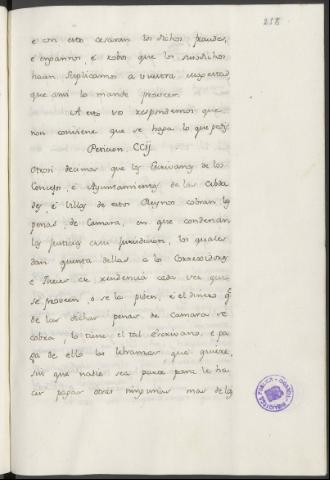 218
e con esto cesaran los dichos fraudes,
e engannos, e robos que los susodichos
hacen. Suplicamos a vuestra magestad,
que ansi lo mande proveer.
A esto vos respondemos que
non conviene que se haga lo que pedis.
Peticion, CCij.
Otrosi decimos que los Escrivanos de los
Concejos, e Ayuntamientos de las Cibda
des, e Villas de estos Reynos cobran las
penas, de Camara, en que condenan
las Justicias en su jurisdicion, los quales
dan quenta dellas a los Corregidores
e Jueces de residencia cada vez que
se proveen, o se la piden, e el dinero q.
de las dichas penas de Camara se
cobra, lo tiene el tal Escrivano, e pa
ga de ello las libranzas, que quiere,
sin que nadie sea parte para le ha
cer pagar otras ningunas mas de las
BIBLIOTECA PUBLICA